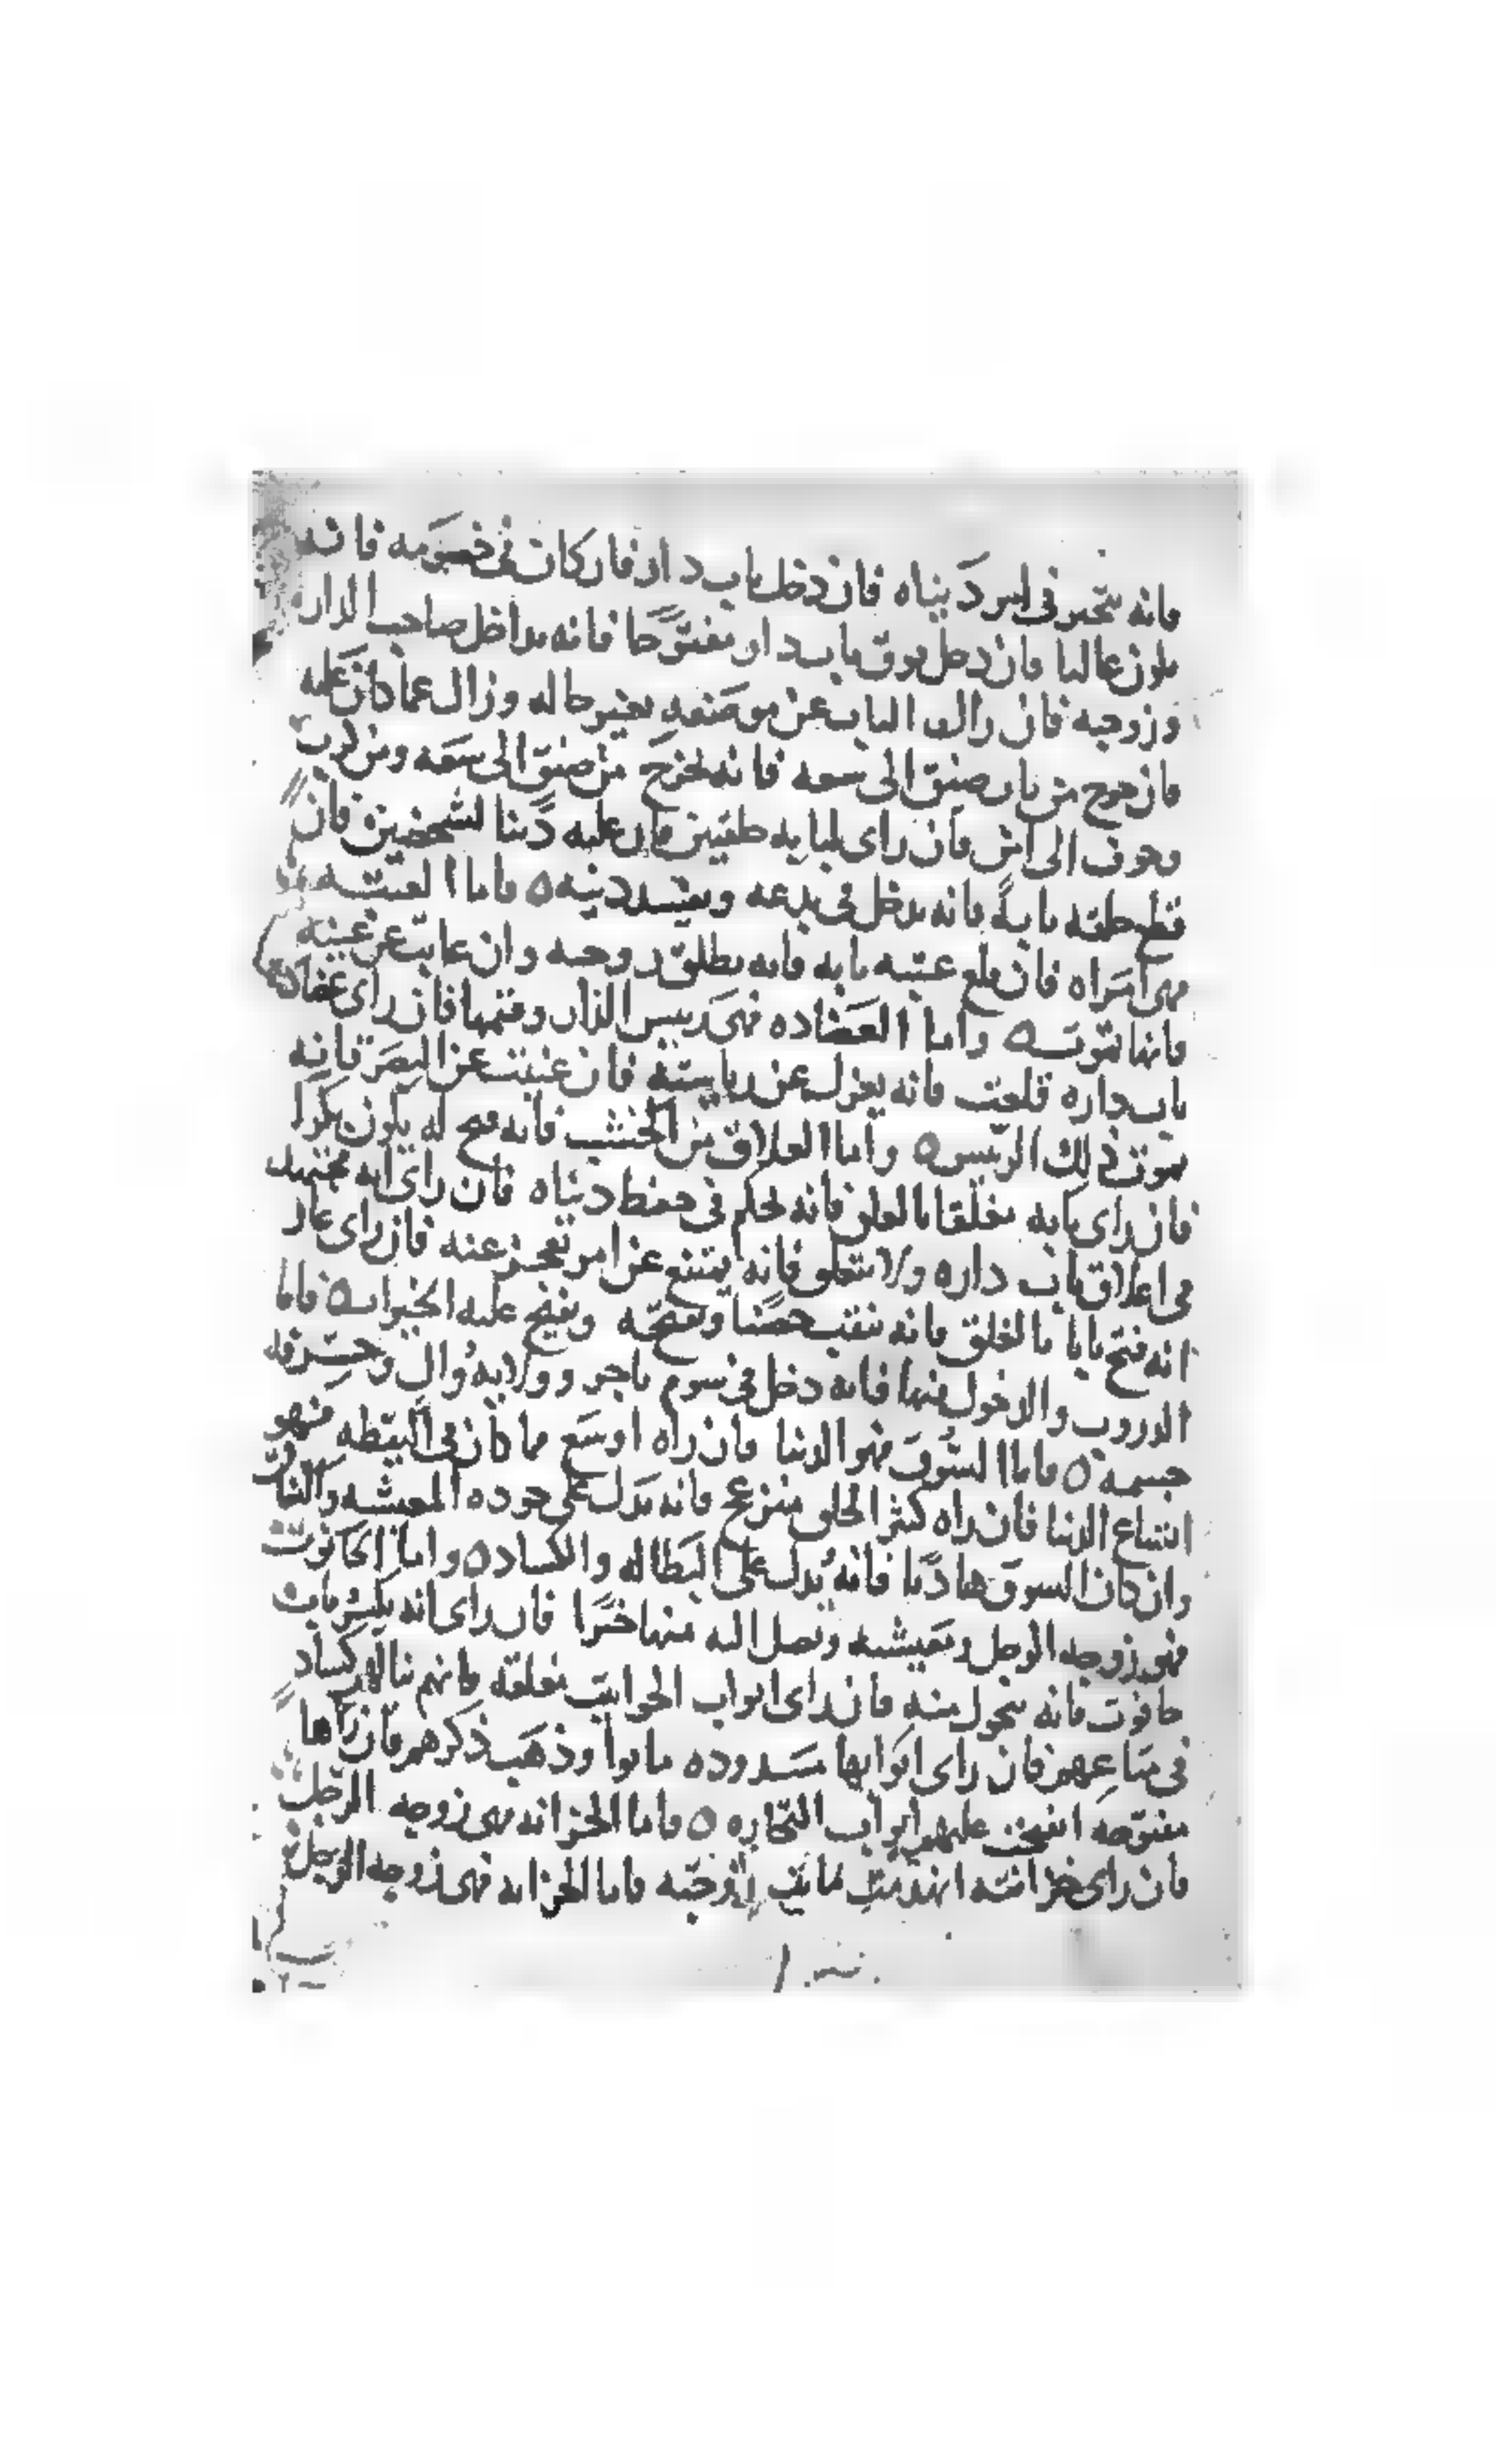 فانه يتحير في امر دنياه فان دخل باب دار فان كان في خصومه فانه
يكون غالبا فان دخل فوق باب دار مفتوحا فانه يداخل صاحب الدار
وزوجه فان زال الباب عن موضعه تغير حاله وزال عما كان عليه
فان خرج من باب ضيق الى سعه فانه يخرج من ضيق الى سعه ومن كرب
وخوف الى امن فان راى لبابه حلقتين فان عليه دينا لشخصين فان
قطع حلقه بابه فانه يدخل في بدعه ويفسد دينه ٥ فاما العتبه
فهي امراه فان قلع عتبه بابه فانه يطلق زوجه وان غابت عن عينه
فانها تموت ٥ واما العضاده فهي رييس الدار وقيمها فان راى عضاده
باب داره قلعت فانه يعزل عن رياسته فان غيبت عن البصر فانه
يموت ذلك الرييس ٥ واما الغلاق من الخشب فانه فتح له يكون بكرا
فان راى بابه مغلقا بالغلق فانه يحكم في حفظ دنياه فان راى انه يجتهد
في اغلاق باب داره ولا ينغلق فانه يمتنع عن امر تعجز عنه فان راى غاز
انه فتح بابا بالغلق فانه ينقب حصنا ويفتحه ويفتح عليه الخيرات ٥ فاما
الدروب والدخول فيها فانه دخل في سوم تاجر وولايه وال وحرفه
جسمه ٥ فاما السوق فهو الدنيا فان راه اوسع مما كان في اليقظه فهو
اتساع الدنيا فان راه كثر الخلق منزعج فانه يدل على جوده المعيشه والنفاق
وان كان السوق هاديا فانه يدل على البطاله والكساد ٥ واما الحانوت
فهو زوجه الرجل ومعيشه وتصل اليه منها خيرا فان راى انه يكسر باب
حانوت فانه يتحول منه فان راى ابواب الحوانيت مغلقه فانهم ينالهم كساد
في متاعهم فان راى ابوابها مسدوده ماتوا وذهب ذكرهم فان راها
مفتوحه انفتحت عليهم ابواب التجاره ٥ فاما الخزانه فهي زوجه الرجل
فان راى خزانته انهدمت ماتت زوجته فاما الخزانه فهي زوجه الرجل